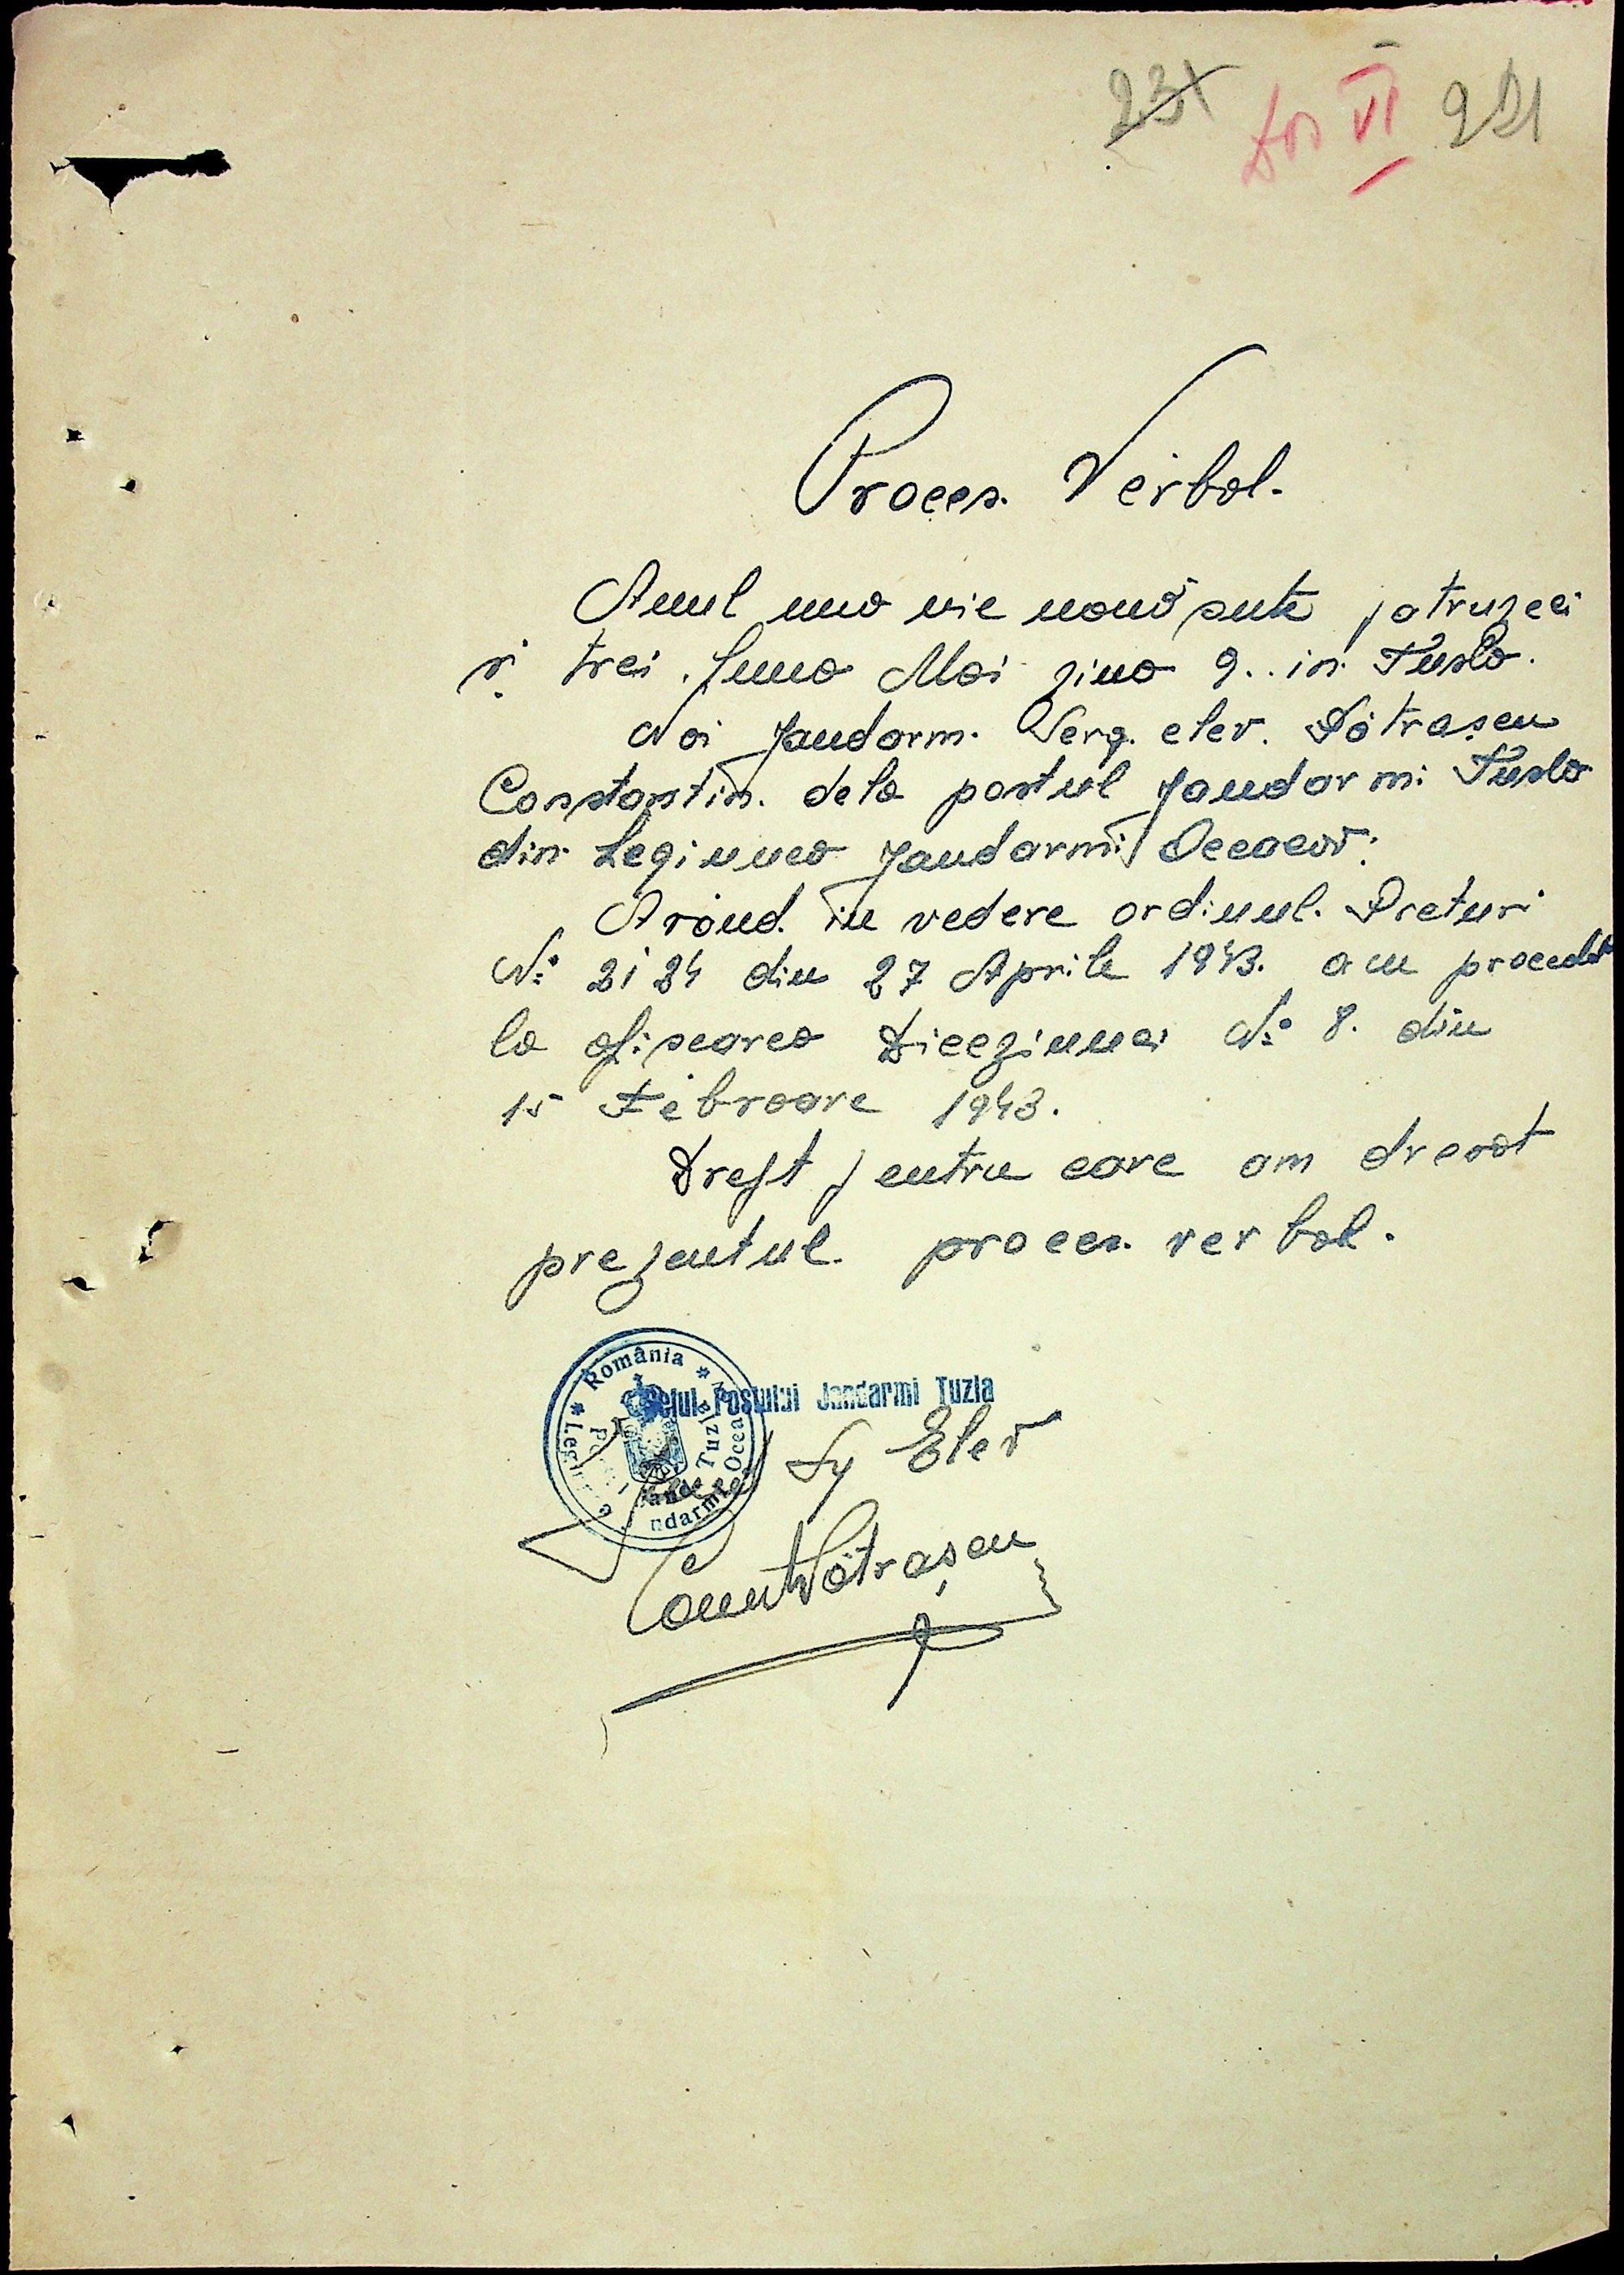 231 Dos VI 221
Proces. Verbal.
Anul una mie nouă sute patruzeci
și trei. Luna Mai ziua 9.. in Tusla.
Noi Jandarm. Serg. elev. Pătrașcu
Constantin. dela postul Jandarmi Tusla
din Legiunea Jandarmi Oceacov.
Având. in vedere ordinul. Preturi
No 2124 din 27 Aprilie 1943. am procedat
la afisearea Diceziunei No 8. din
15 Februoare 1943.
Drept pentru care am dresat
prezentul. proces. verbal.
Șeful Postului Jandarmi Tuzla
* România *
Legiunea ndarmi Ocea
Tuzla
Elev
Const Pătrașcu